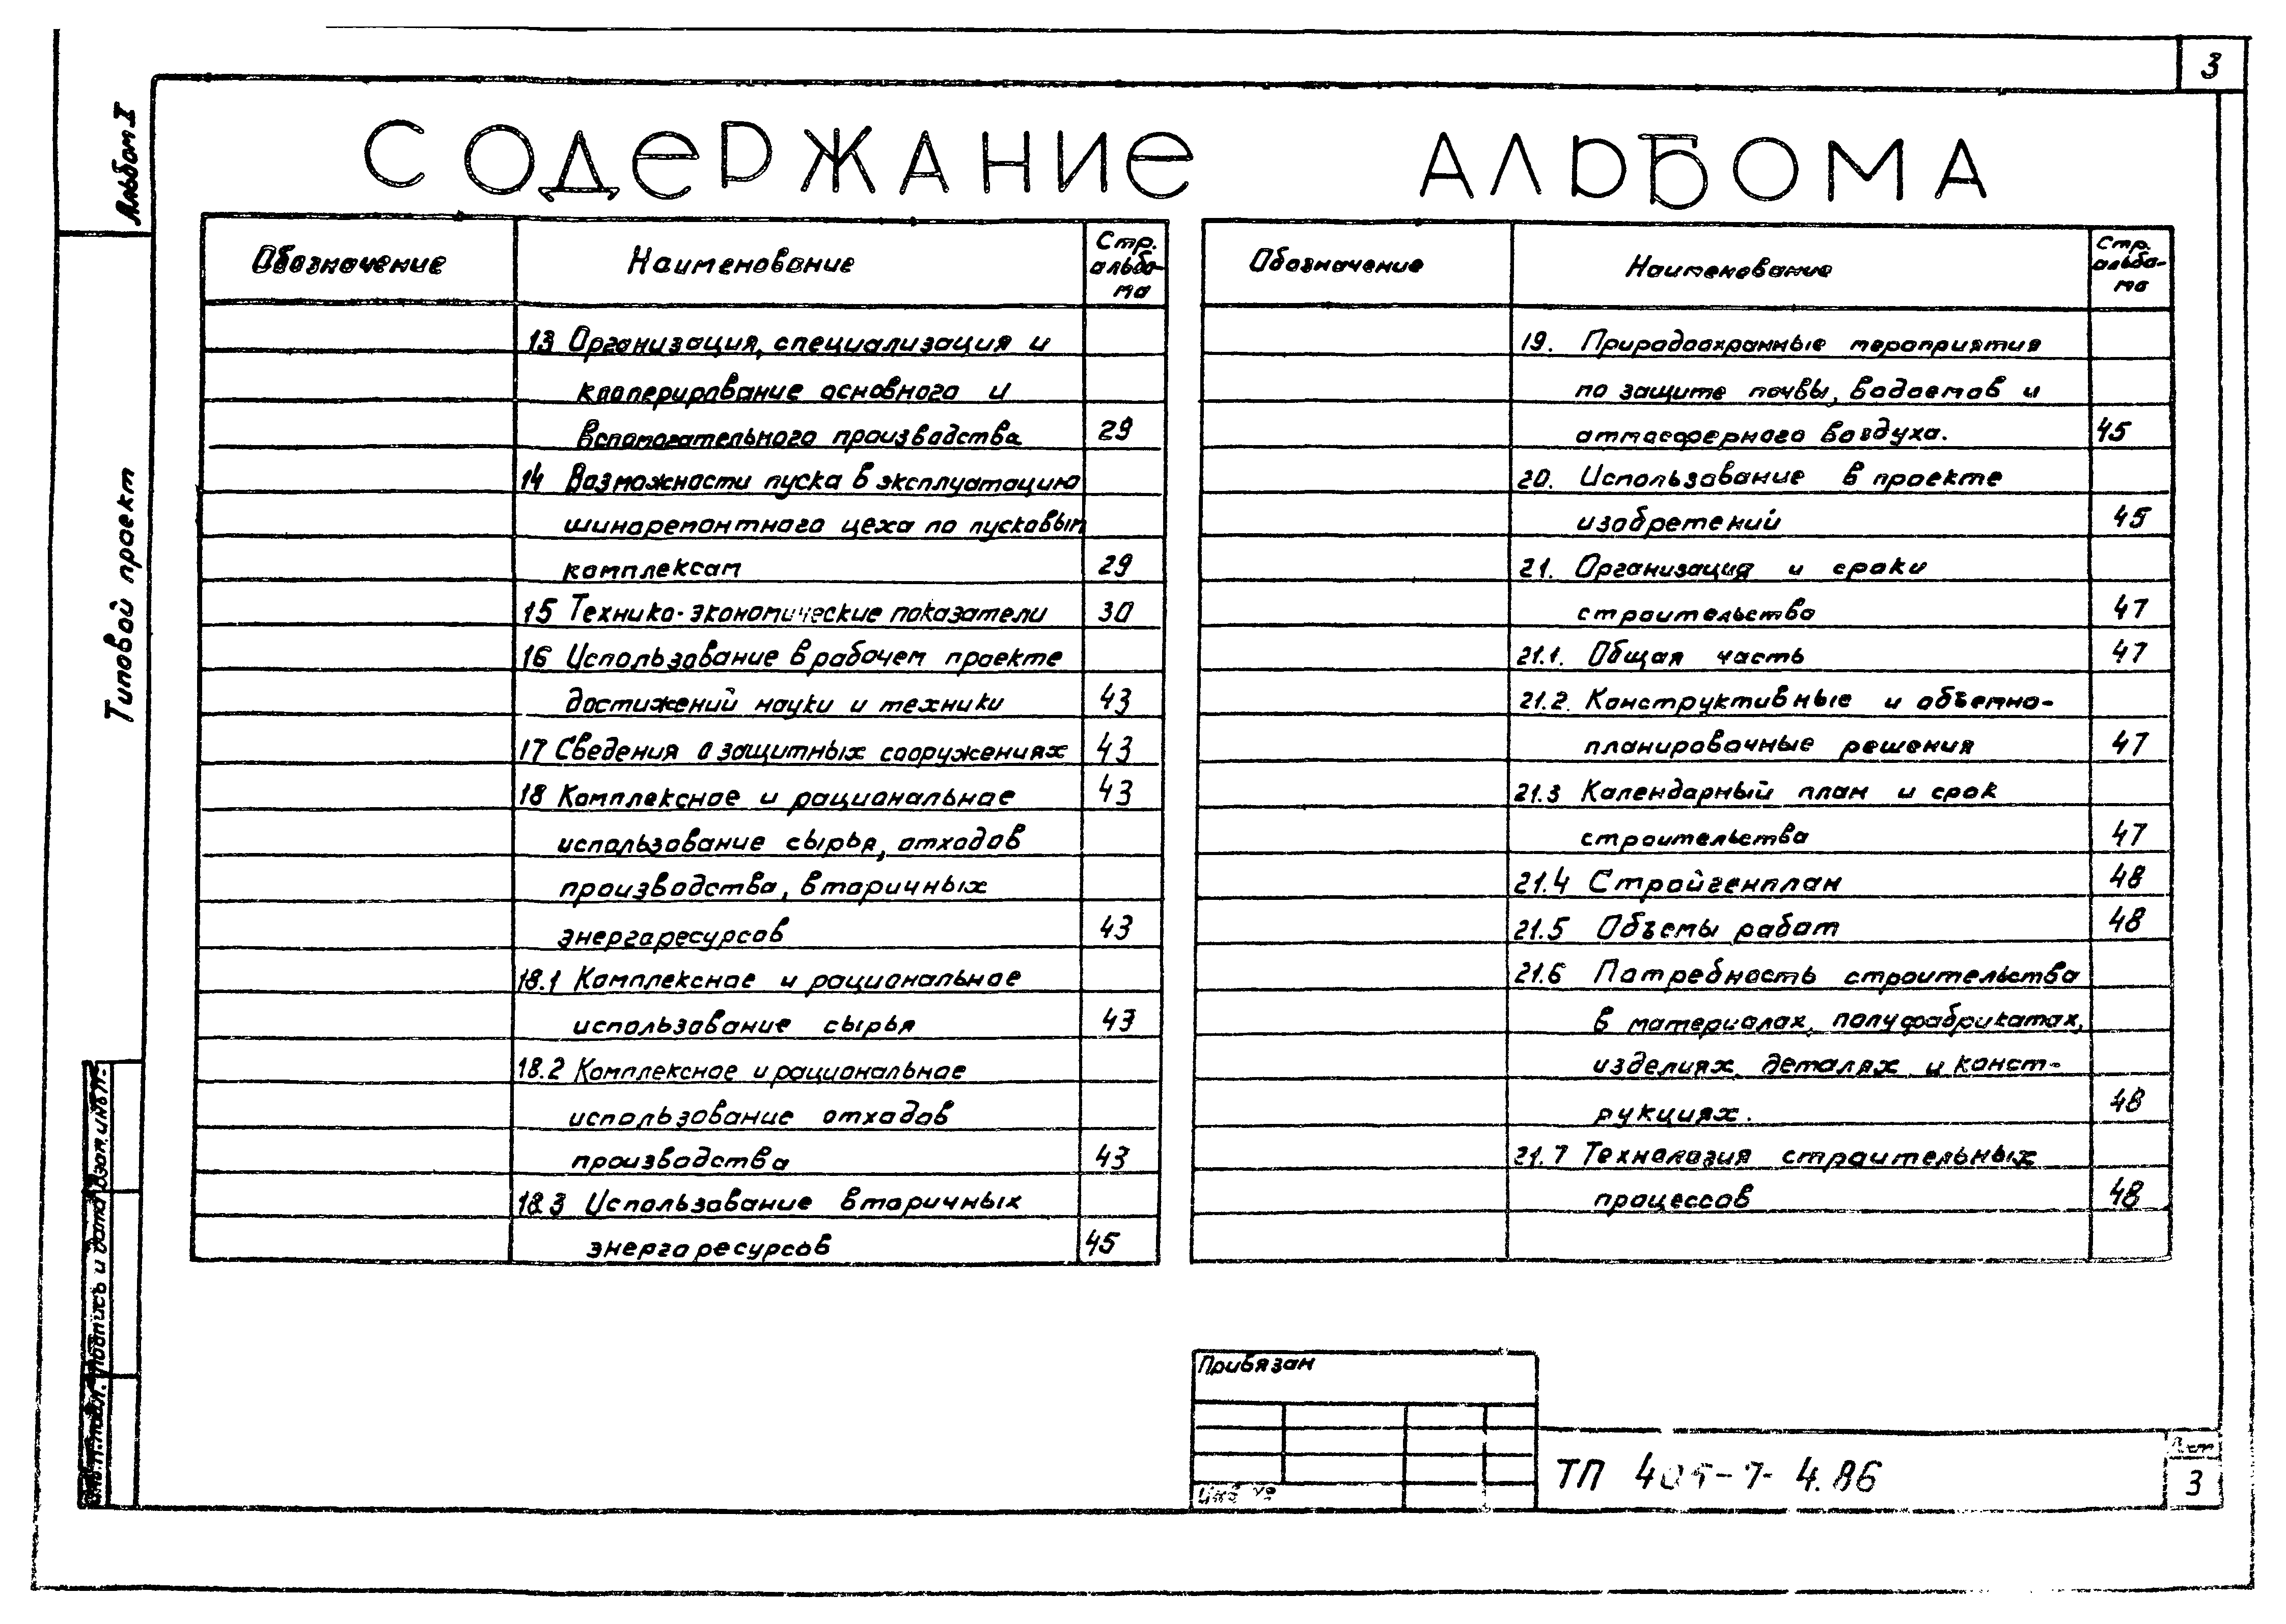 3
Альбом I
Типовой проект
СОДЕРЖАНИЕ АЛЬБОМА
Обозначение Наименование Стр. альбо- ма
13 Организация, специализация и
кооперирование основного и
вспомогательного производства 29
14 Возможности пуска в эксплуатацию
шиноремонтного цеха по пусковым
комплексам 29
15 Технико-экономические показатели 30
16 Использование в рабочем проекте
достижений науки и техники 43
17 Сведения о защитных сооружениях 43
18 Комплексное и рациональное 43
использование сырья, отходов
производства, вторичных
энергоресурсов 43
18.1 Комплексное и рациональное
использование сырья 43
18.2 Комплексное и рациональное
использование отходов
производства 43
18.3 Использование вторичных
энергоресурсов 45
Обозначение Наименование Стр. альбо- ма
19. Природоохранные мероприятия
по защите почвы, водоемов и
атмосферного воздуха. 45
20. Использование в проекте
изобретений 45
21. Организация и сроки
строительства 47
21.1. Общая часть 47
21.2. Конструктивные и объемно-
планировочные решения 47
21.3 Календарный план и срок
строительства 47
21.4 Стройгенплан 48
21.5 Объемы работ 48
21.6 Потребность строительства
в материалах, полуфабрикатах,
изделиях, деталях и конст-
рукциях. 48
21.7 Технология строительных
процессов 48
Взам. инв. №
Подпись и дата
Инв. № подл.
Привязан
Инв №
ТП 405-7-4.86
Лист
3